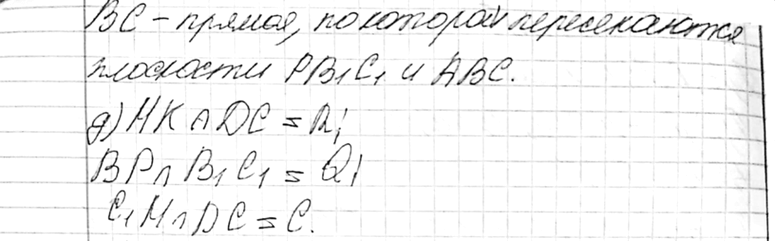 BC - прямая, по которой пересекаются
плоскости PB₁C₁ и ABC.
д) MK ∩ DC = R;
BP ∩ B₁C₁ = Q;
C₁M ∩ DC = C.